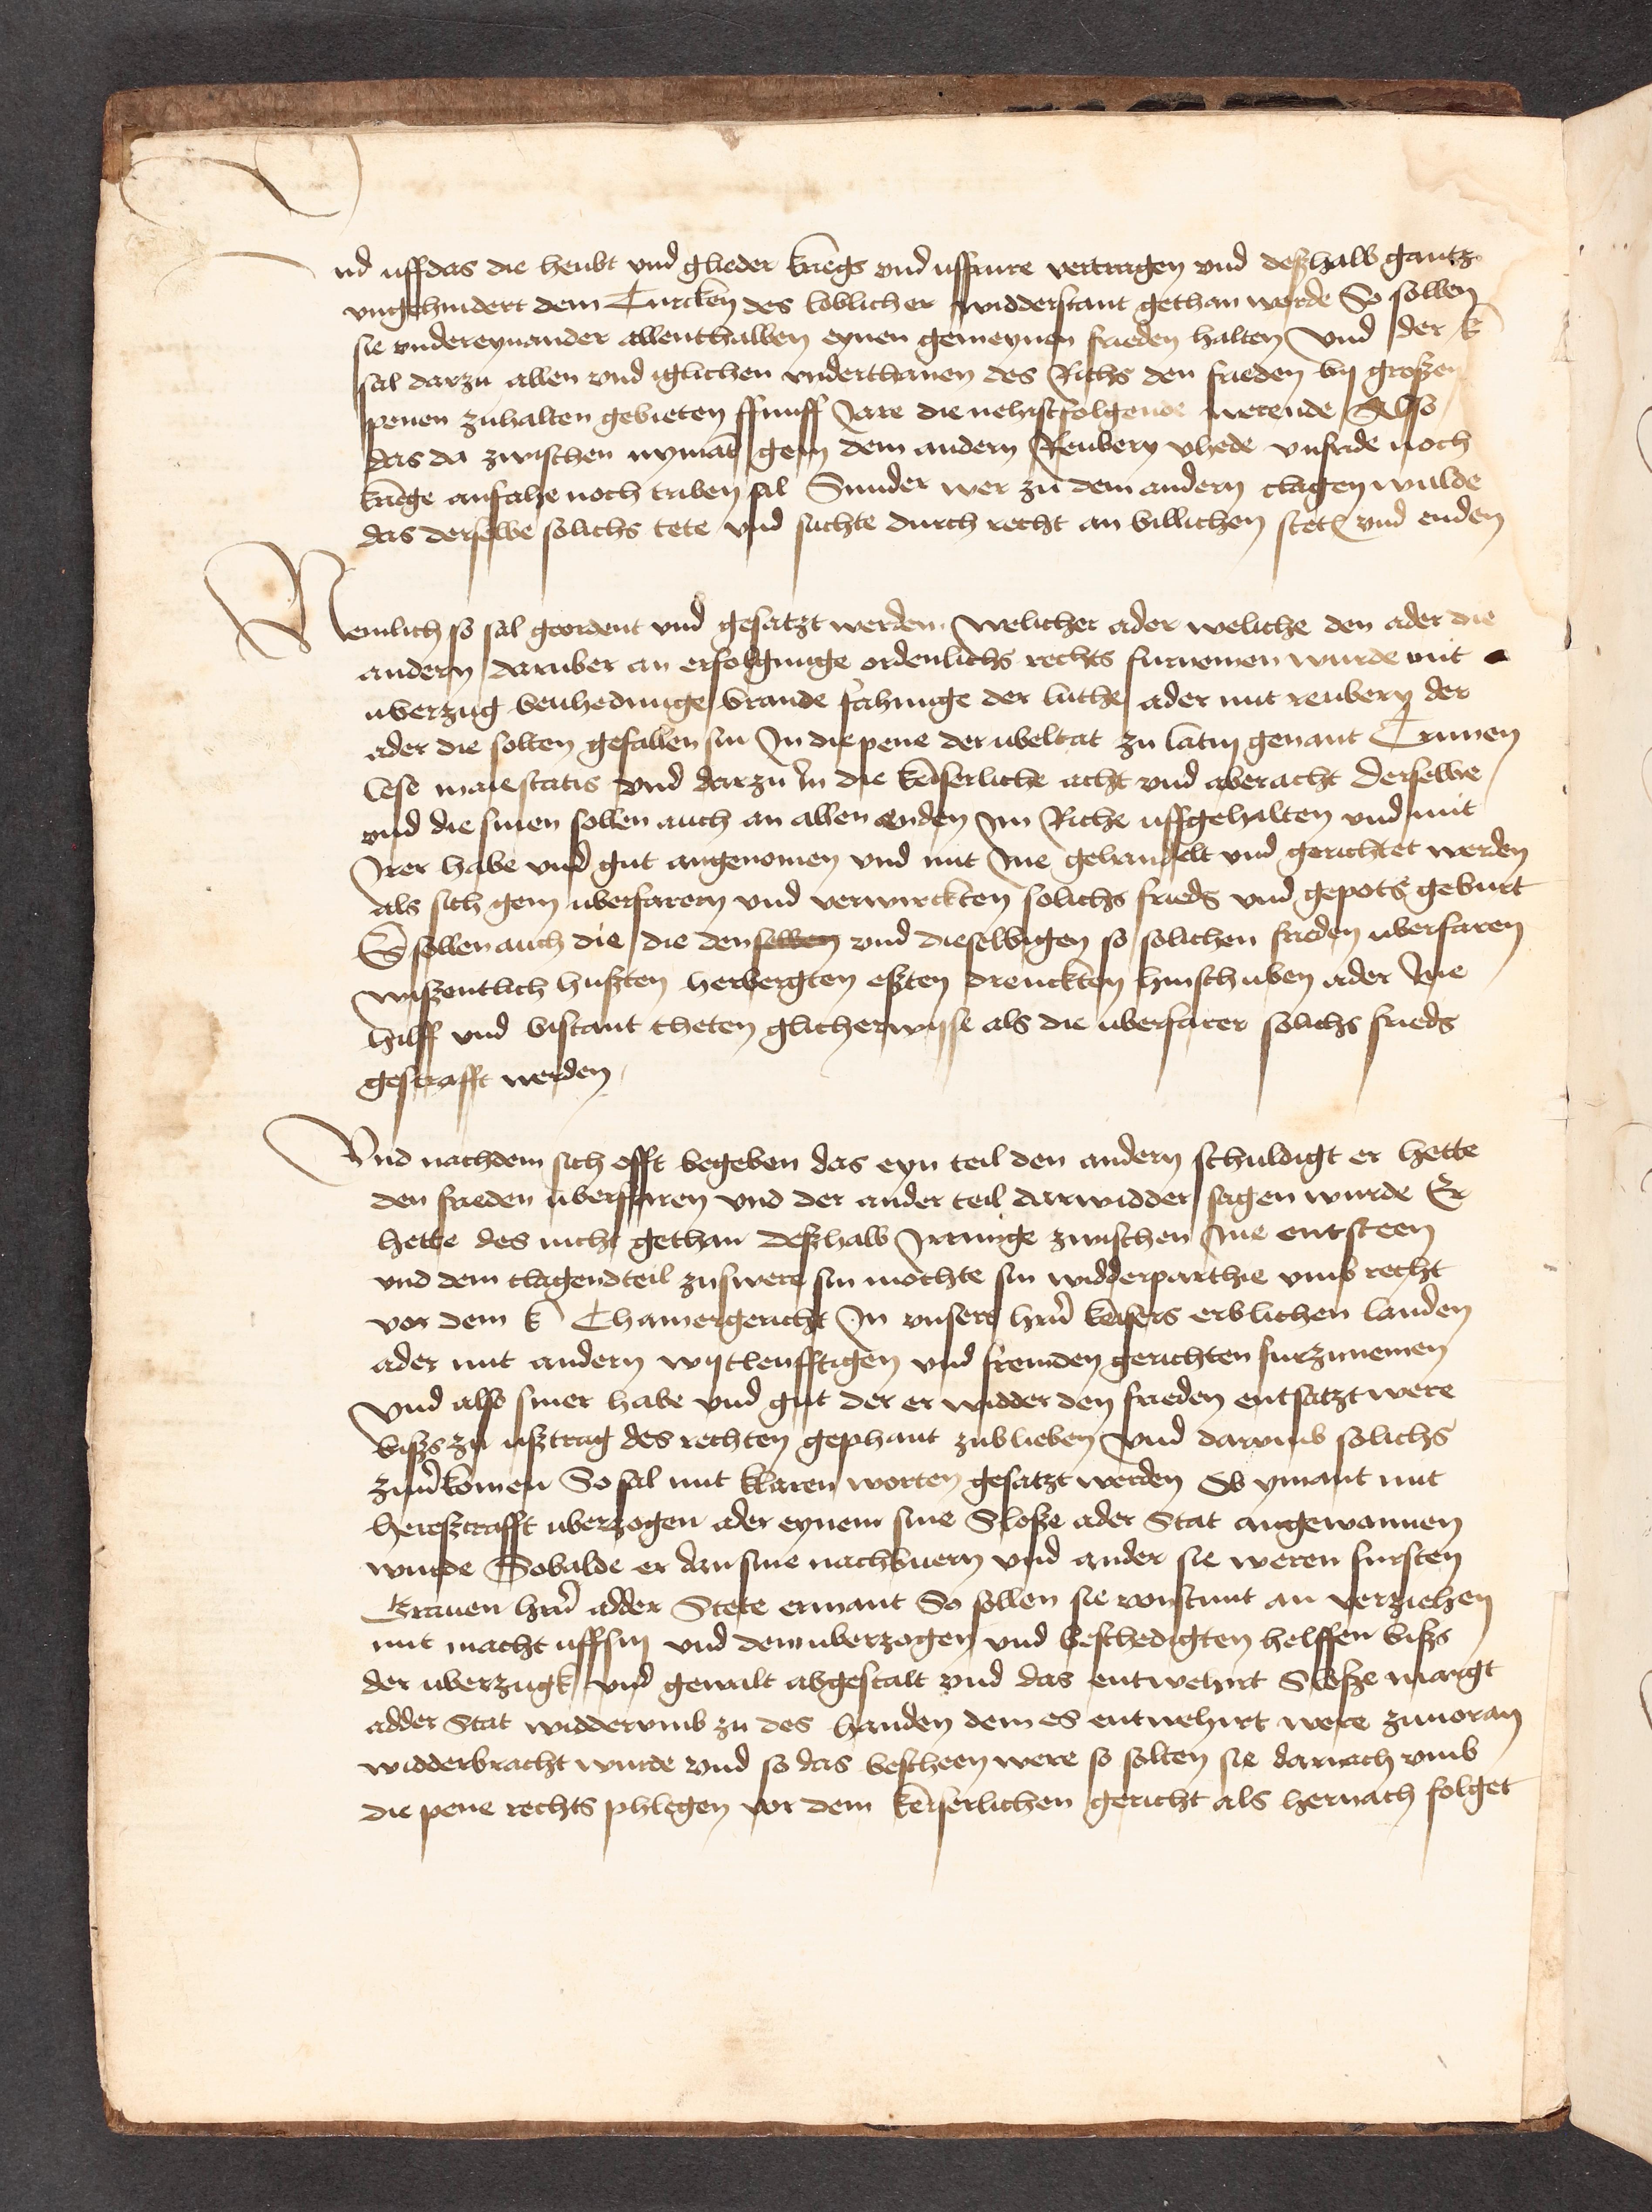 nd uffdas die heubt vnd glieder kriegs vnd uffrure vertragen vnd deßhalb gantz
vngehindert dem Turcken des loblicher widderstant gethan werde So sollen
sie vndereynander allenthalben eynen gemeynen frieden halten Vnd der k
sal darzu allen vnd iglichen vnderthanen des Richs den frieden by großen
penen zuhalten gebieten ffunff Jare die nehstfolgende werende Also
das da zwischen nymant gein dem andern Reubery vhede vnfride noch
kriege anfahe noch triben sal Sunder wer zu dem andern clagen wulde
das derselbe solichs tete vnd suchte durch recht an billichen stetē vnd enden
Nemlich so sal geordent vnd gesatzt werden welicher ader weliche den ader die
andern daruber an erfolgunge ordenlichs rechts furnemen wurde mit
uberzug bevhedunge brande fahunge der luthe ader mit reubery der
ader die solten gefallen sin In die pene der ubeltat zu latin genant Crimen
lese maiestatis vnd darzu in die keiserliche acht vnd aberacht Derselbe
vnd die sinen sollen auch an allen enden im Riche uffgehalten vnd mit
Irer habe vnd gut angenomen vnd mit Ine gehandelt vnd gerichtet werden
als sich gein uberfarern vnd verwirckten solichs frieds vnd gepots geburt
Es sollen auch die die denselben vnd dieselbigen so solichen frieden uberfaren
wißentlich hußten herbergten eßten drenckten hinschuben ader Ine
hilff vnd bistant theten glicherwyse als die uberfarer solichs frieds
gestrafft werden
Vnd nachdem sich offt begeben das eyn teil den andern schuldigt er hette
den frieden uberfaren vnd der ander teil darwidder sagen wurde Er
hette des nicht gethan deßhalb Irrunge zwischen Ine entsteen
vnd dem clagendteil zuswere sin mochte sin widderparthie vmb recht
vor dem k Chamergericht In vnsers hrn keisers erblichen landen
ader mit andern wytleufftigen vnd fremden gerichten furzunemen
Vnd also siner habe vnd gut der er widder den frieden entsatzt were
bißs zu ußtrag des rechten gephant zublieben Vnd darumb solichs
zuuerkomen So sal mit klaren worten gesatzt werden Ob ymant mit
hereßcrafft uberzogen ader eynem sine Sloße ader Stat angewonnen
wurde Sobalde er dan sine nachburn vnd ander sie weren fursten
Grauen hrn adder Stete ermant So sollen sie vonstunt an verziehen
mit macht uffsin vnd dem uberzogen vnd beschedigten helffen bißs
der uberzugk vnd gewalt abgestalt vnd das entwehirt Sloße margt
adder Stat widderumb zu des handen dem es entwehirt were zuuoran
widderbracht wurde vnd so das bescheen were so solten sie darnach vmb
die pene rechts phlegen vor dem keiserlichen gericht als hernach folget